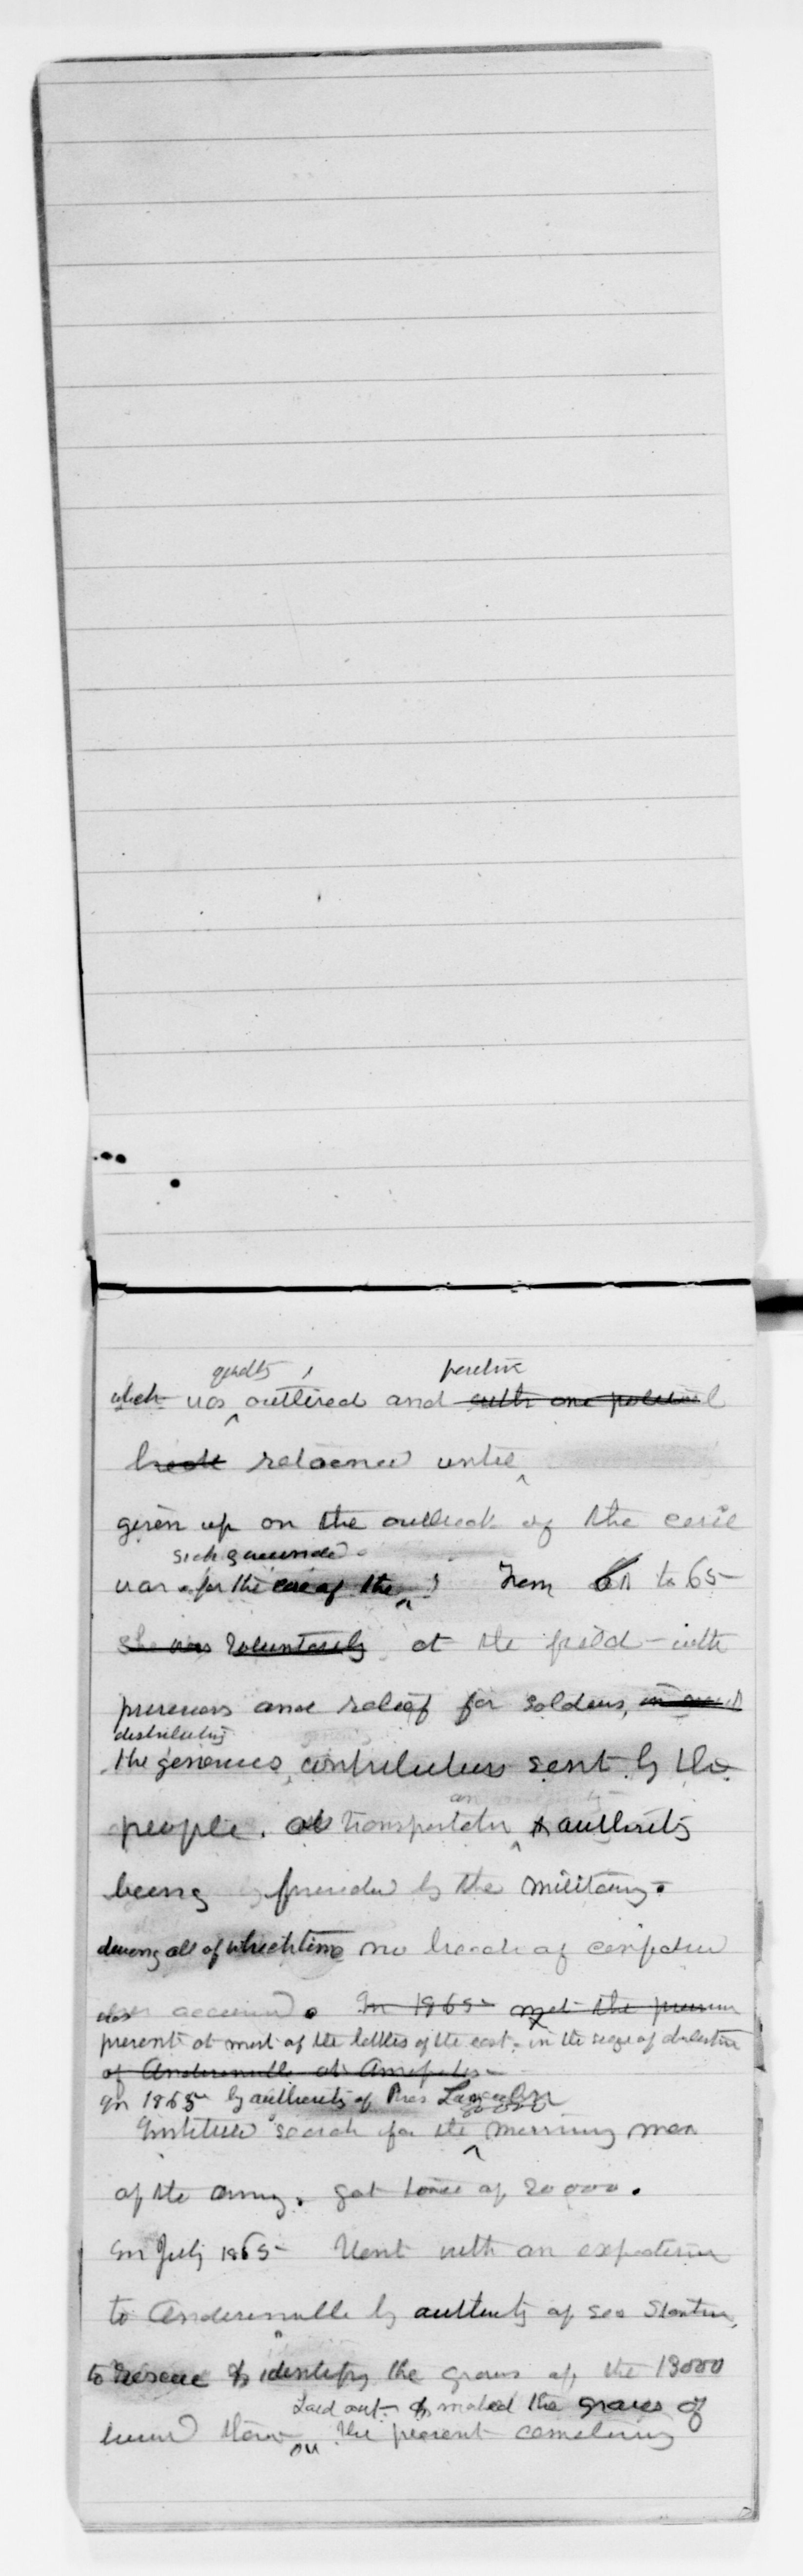 quietly , position
which was outlived and with one political
break retained until
given up on the outbreak of the civil
sick & wounded
war - for the care of the From 61 to 65 -
she was voluntarily at the field - with
provisions and relief for soldiers,
distributing
the generous contributions sent by the
people. transportation & authority
being provided by the military.
during all of which time no breach of
was 1865 - met the
present at most of the battles of the east - in the siege of Charleston
of Andersonville at Annapolis -
In 1865 by authority of Pres Lincoln
80 000
Instituted search for the missing men
of the army. got trace of 20 000.
In July 1865 - Went with an expedition
to Andersonville by authority of Sec Stanton,
to rescue & identify the graves of the 13000
Laid out & marked the graves of
buried there the present cemetery